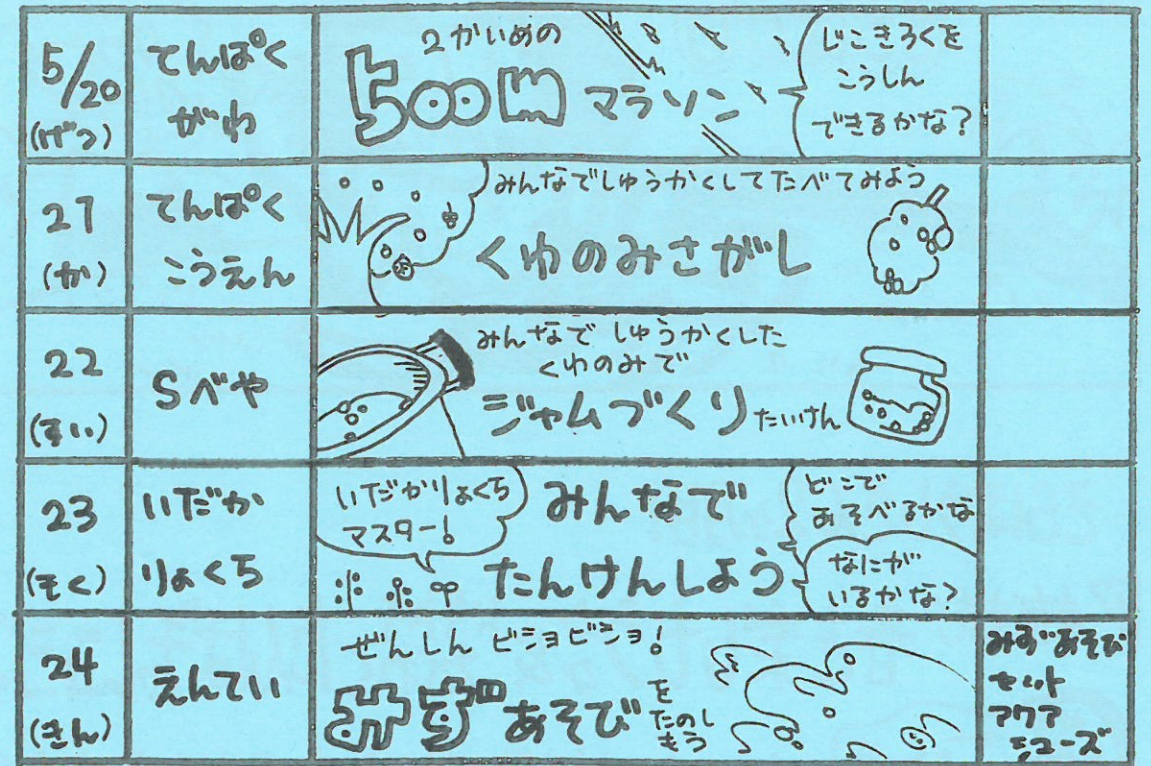 5/20
(げつ)
てんぱく
がわ
2かいめの
500m マラソン
じこきろくを
こうしん
できるかな?
21
(か)
てんぱく
こうえん
みんなでしゅうかくしてたべてみよう
くわのみさがし
22
(すい)
Sべや
みんなでしゅうかくした
くわのみで
ジャムづくりたいけん
23
(もく)
いだか
りょくち
いだかりょくち
マスター!
みんなで
たんけんしよう
どこで
あそべるかな
なにが
いるかな?
24
(きん)
えんてい
ぜんしん ビショビショ!
みずあそび
を
たのし
もう
みずあそび
セット
アクア
シューズ